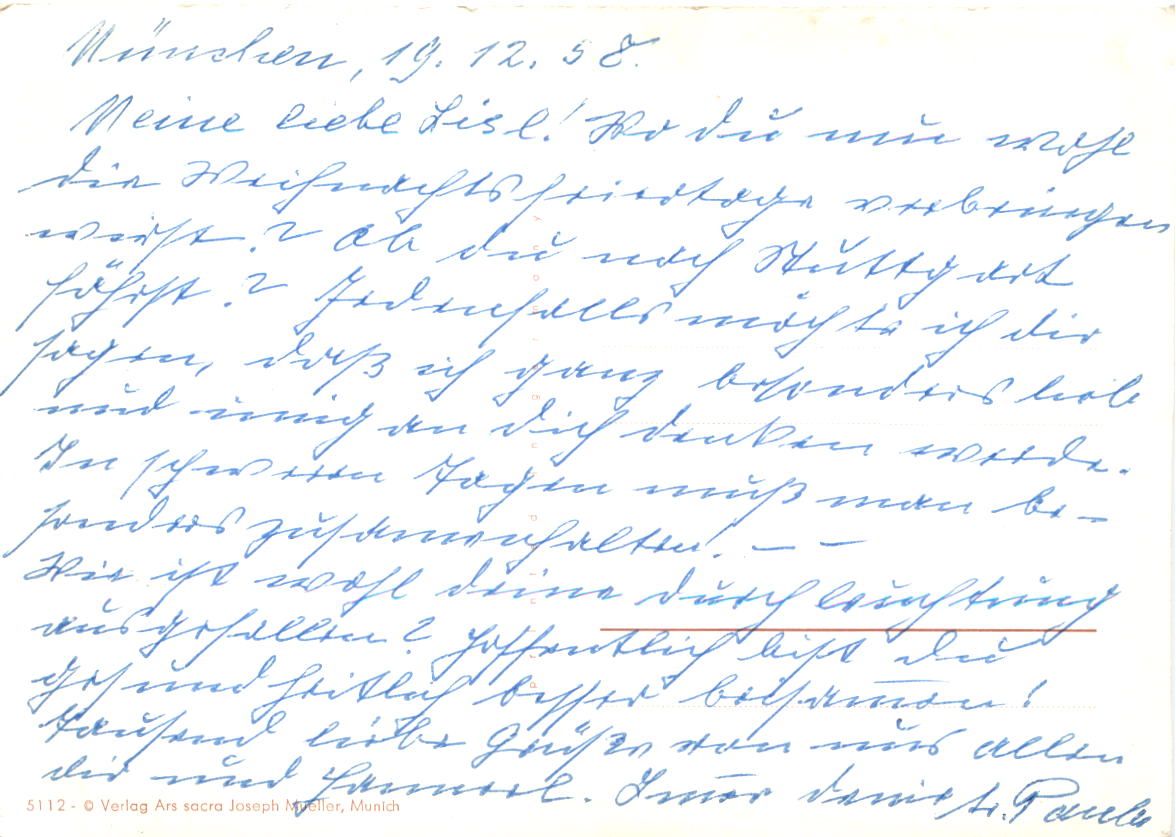 München, 19. 12. 58.
Meine liebe Lisl! Wo du nun wohl
die Weihnachtsfeiertage verbringen
wirst? Ob du nach Stuttgart
fährst? Jedenfalls möchte ich dir
sagen, daß ich ganz besonders lieb
und innig an dich denken werde.
In schweren Tagen muß man be-
sonders zusamenhalten. — —
Wie ist wohl deine Durchleuchtung
ausgefallen? Hoffentlich bist du
gesundheitlich besser beisamen!
Tausend liebe Grüße von uns allen
dir und Hannerl. Imer deine tr. Paula
5112 - © Verlag Ars sacra Joseph Mueller, Munich